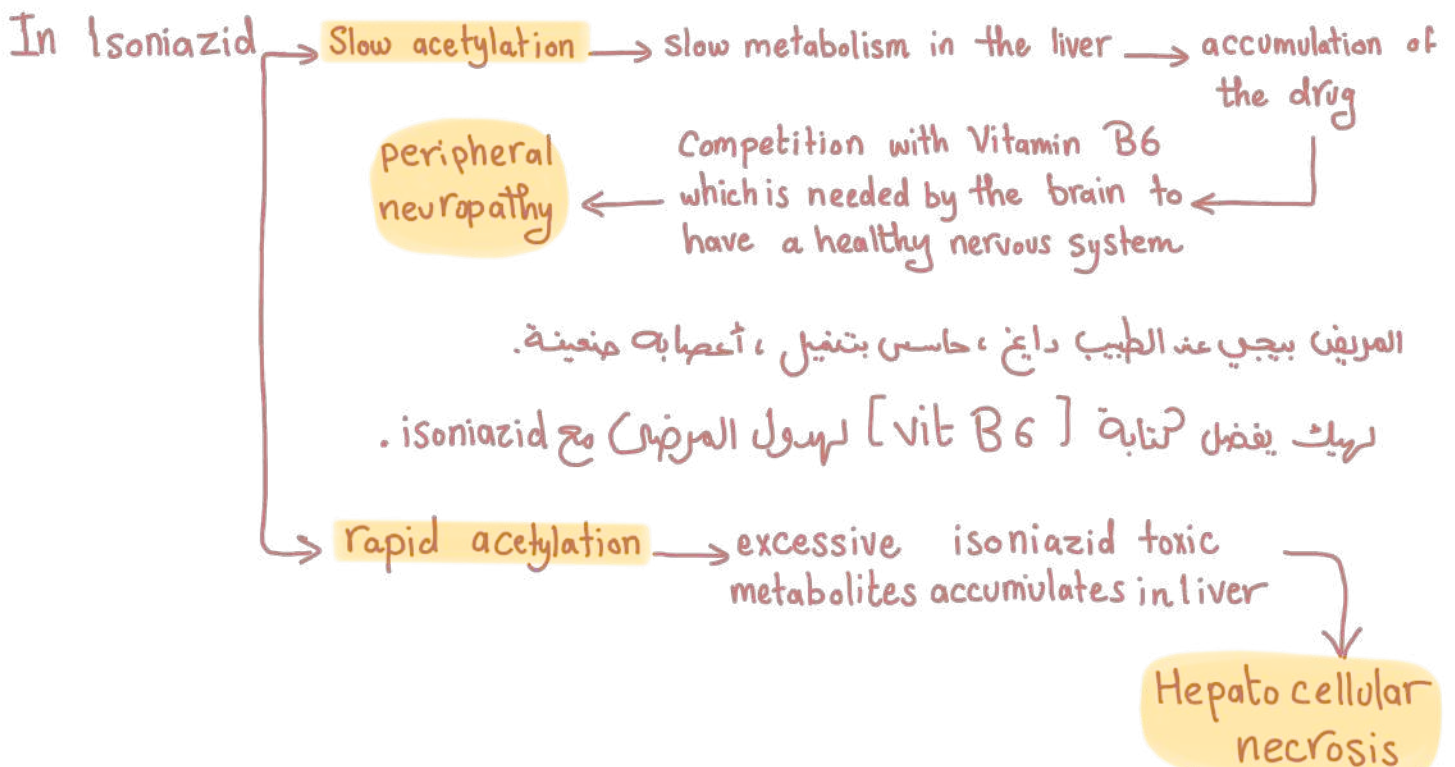 In Isoniazid
Slow acetylation
slow metabolism in the liver
accumulation of
the drug
Competition with Vitamin B6
which is needed by the brain to
have a healthy nervous system
peripheral
neuropathy
المريض بيجي عند الطبيب دايخ ، حاسس بتنميل ، أعصابه ضعيفة.
لهيك يفضل كتابة [vit B6] لهدول المرضى مع isoniazid .
rapid acetylation
excessive isoniazid toxic
metabolites accumulates in liver
Hepato cellular
necrosis